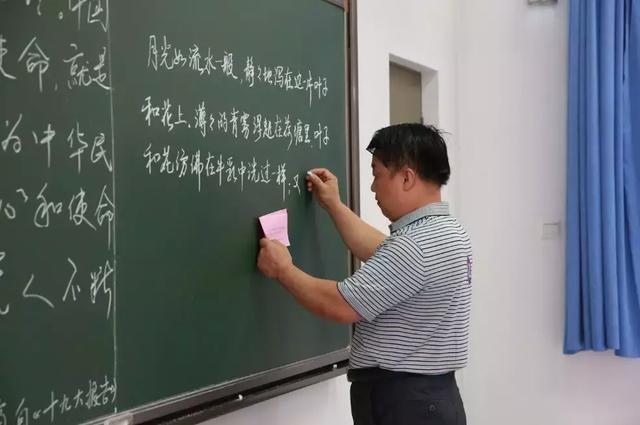 中国
使命,就是
为中华民
和使命
人不断
句《十九大报告》
月光如流水一般,静々地泻在这一片叶子
和花上。薄々的青雾浮起在荷塘里。叶子
和花仿佛在牛乳中洗过一样;又